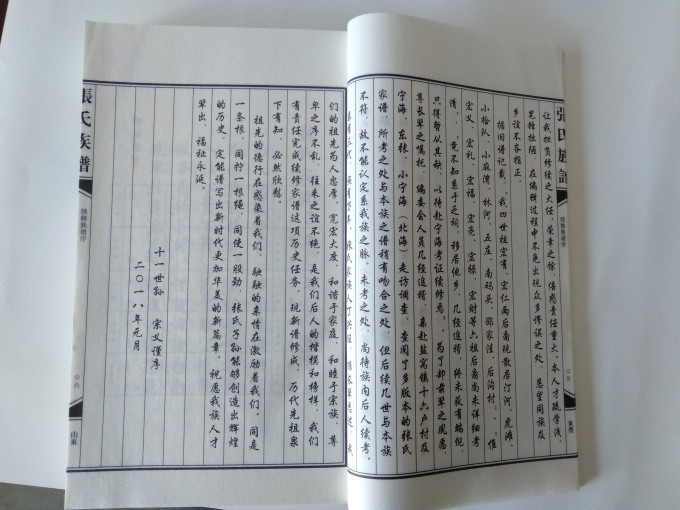 张氏族谱
续修族谱序
让我担负修续之大任，荣幸之余，倍感责任重大，本人才疏学浅，
笔拙枝陋，在编辑过程中不免出现众多谬误之处，恳望阅族及
乡谊不吝指正。
据旧谱记载，我四世祖宏有、宏仁两后裔现散居汀河、虎滩、
小拾队、小麻湾、林河、五庄、南码头、邵家洼、后泊村；惟
宏义、宏礼、宏福、宏亮、宏禄、宏财等六祖后裔尚未详细考
清，竟不知系于乏祠，移居他乡，几经追稽，终未获有端倪，
只得暂从其缺，以待赴宁海考证续修焉。为了却前辈之夙愿，
尊长辈之嘱托，编委会人员几经追稽，亲赴盐窝镇十六户村及
宁海、东张、小宁海（北海）走访调查，查阅了多版本的张氏
家谱，所考之处与本族之谱稍有吻合之处，但后续几世与本族
不符，故不能认定系我族之脉。未考之处，尚待族内后人续考。
们的祖先为人忠厚，宽宏大度，和谐于家庭，和睦于宗族，尊
卑之序不乱，往来之谊不绝，是我们后人的楷模和榜样，我们
有责任完成续修家谱这项历史任务。现新谱修成，历代先祖泉
下有知，必然欣慰。
祖先的德行在感染着我们，融融的亲情在激励着我们，同是
一条根，同拧一根绳，同使一股劲，张氏子孙能够创造出辉煌
的历史，定能谱写出新时代更加华美的新篇章，祝愿我族人才
辈出，福祉永延。
十一世孙 宗义谨序
二〇一八年元月
張氏族譜
续修族谱序
〇六
山東